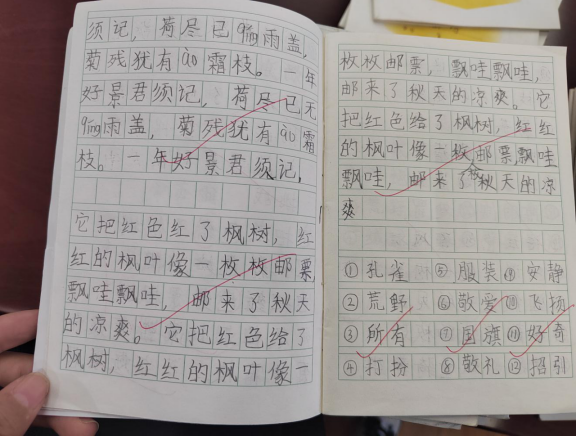 须记，荷尽已qíng雨盖，
菊残犹有ào霜枝。一年
好景君须记，荷尽已无
qíng雨盖，菊残犹有ào霜
枝。一年好景君须记，
它把红色红了枫树，红
红的枫叶像一枚枚邮票
飘哇飘哇，邮来了秋天
的凉爽。它把红色给了
枫树，红红的枫叶像一
枚枚邮票，飘哇飘哇，
邮来了秋天的凉爽。它
把红色给了枫树，红红
的枫叶像一枚邮票飘哇
飘哇，邮来了秋天的凉
爽
①孔雀 ⑤服装 ⑨安静
②荒野 ⑥敬爱 ⑩飞扬
③所有 ⑦国旗 ⑪好奇
④打扮 ⑧敬礼 ⑫招引